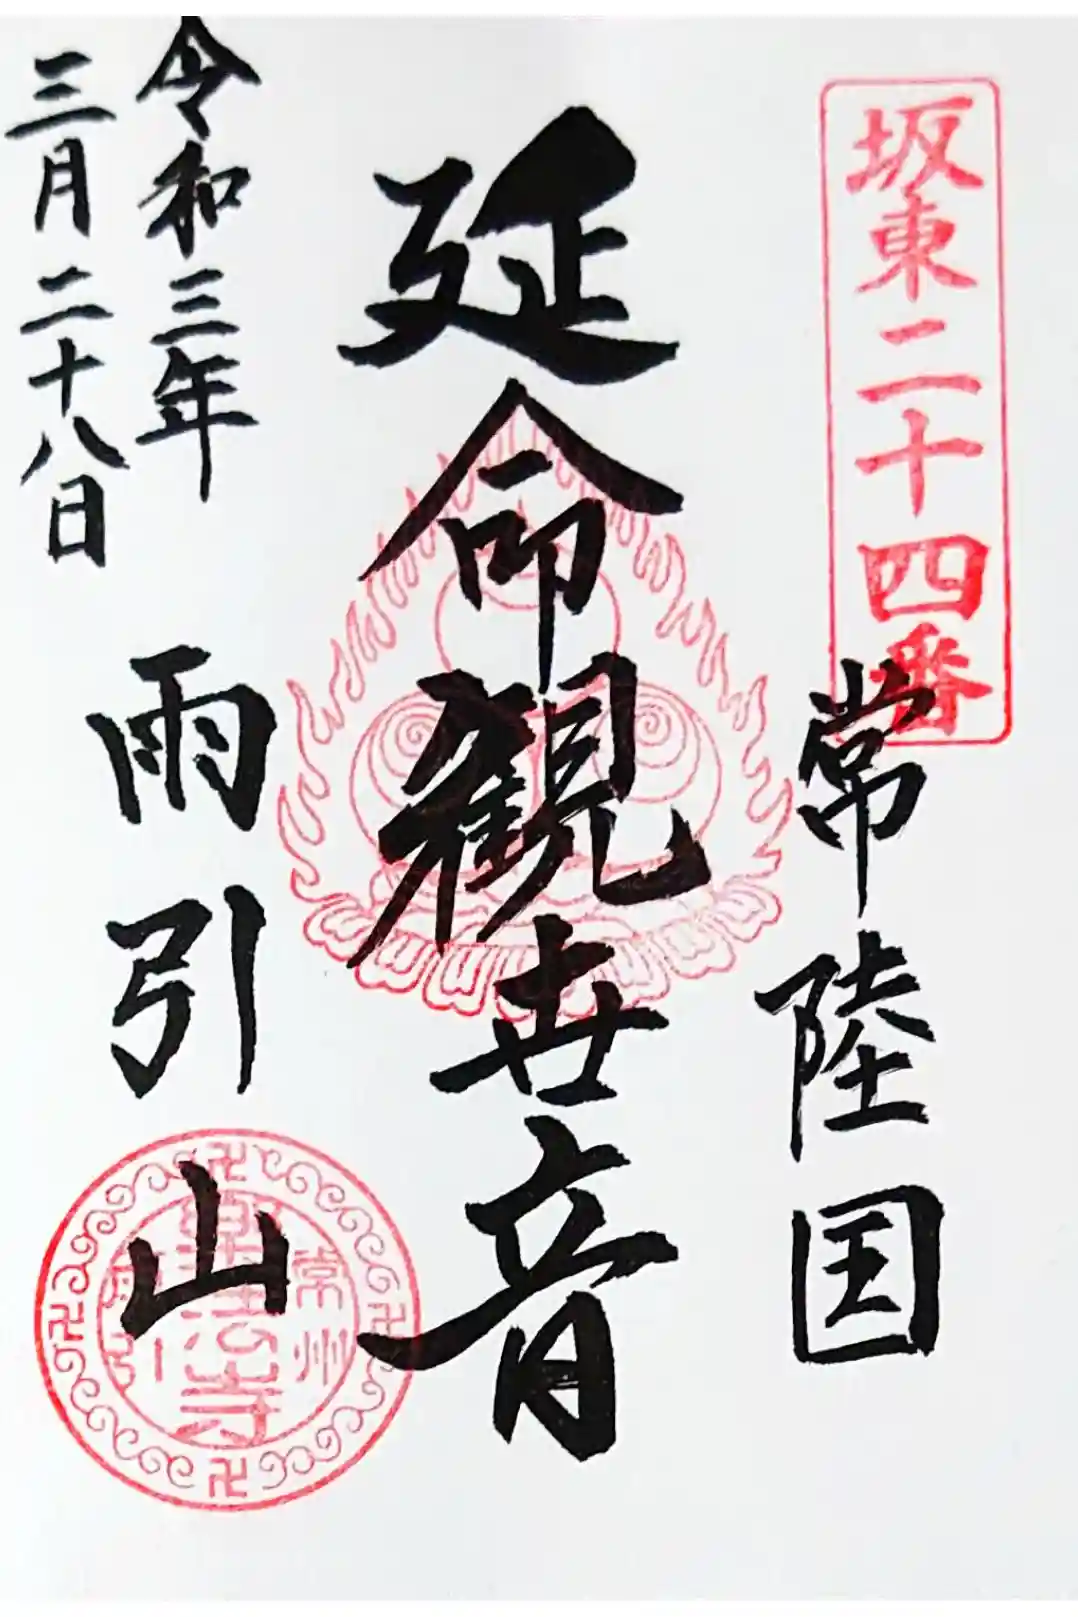 坂東二十四番
常陸国
延命観世音
令和三年
三月二十八日
雨引山
常州
楽法寺